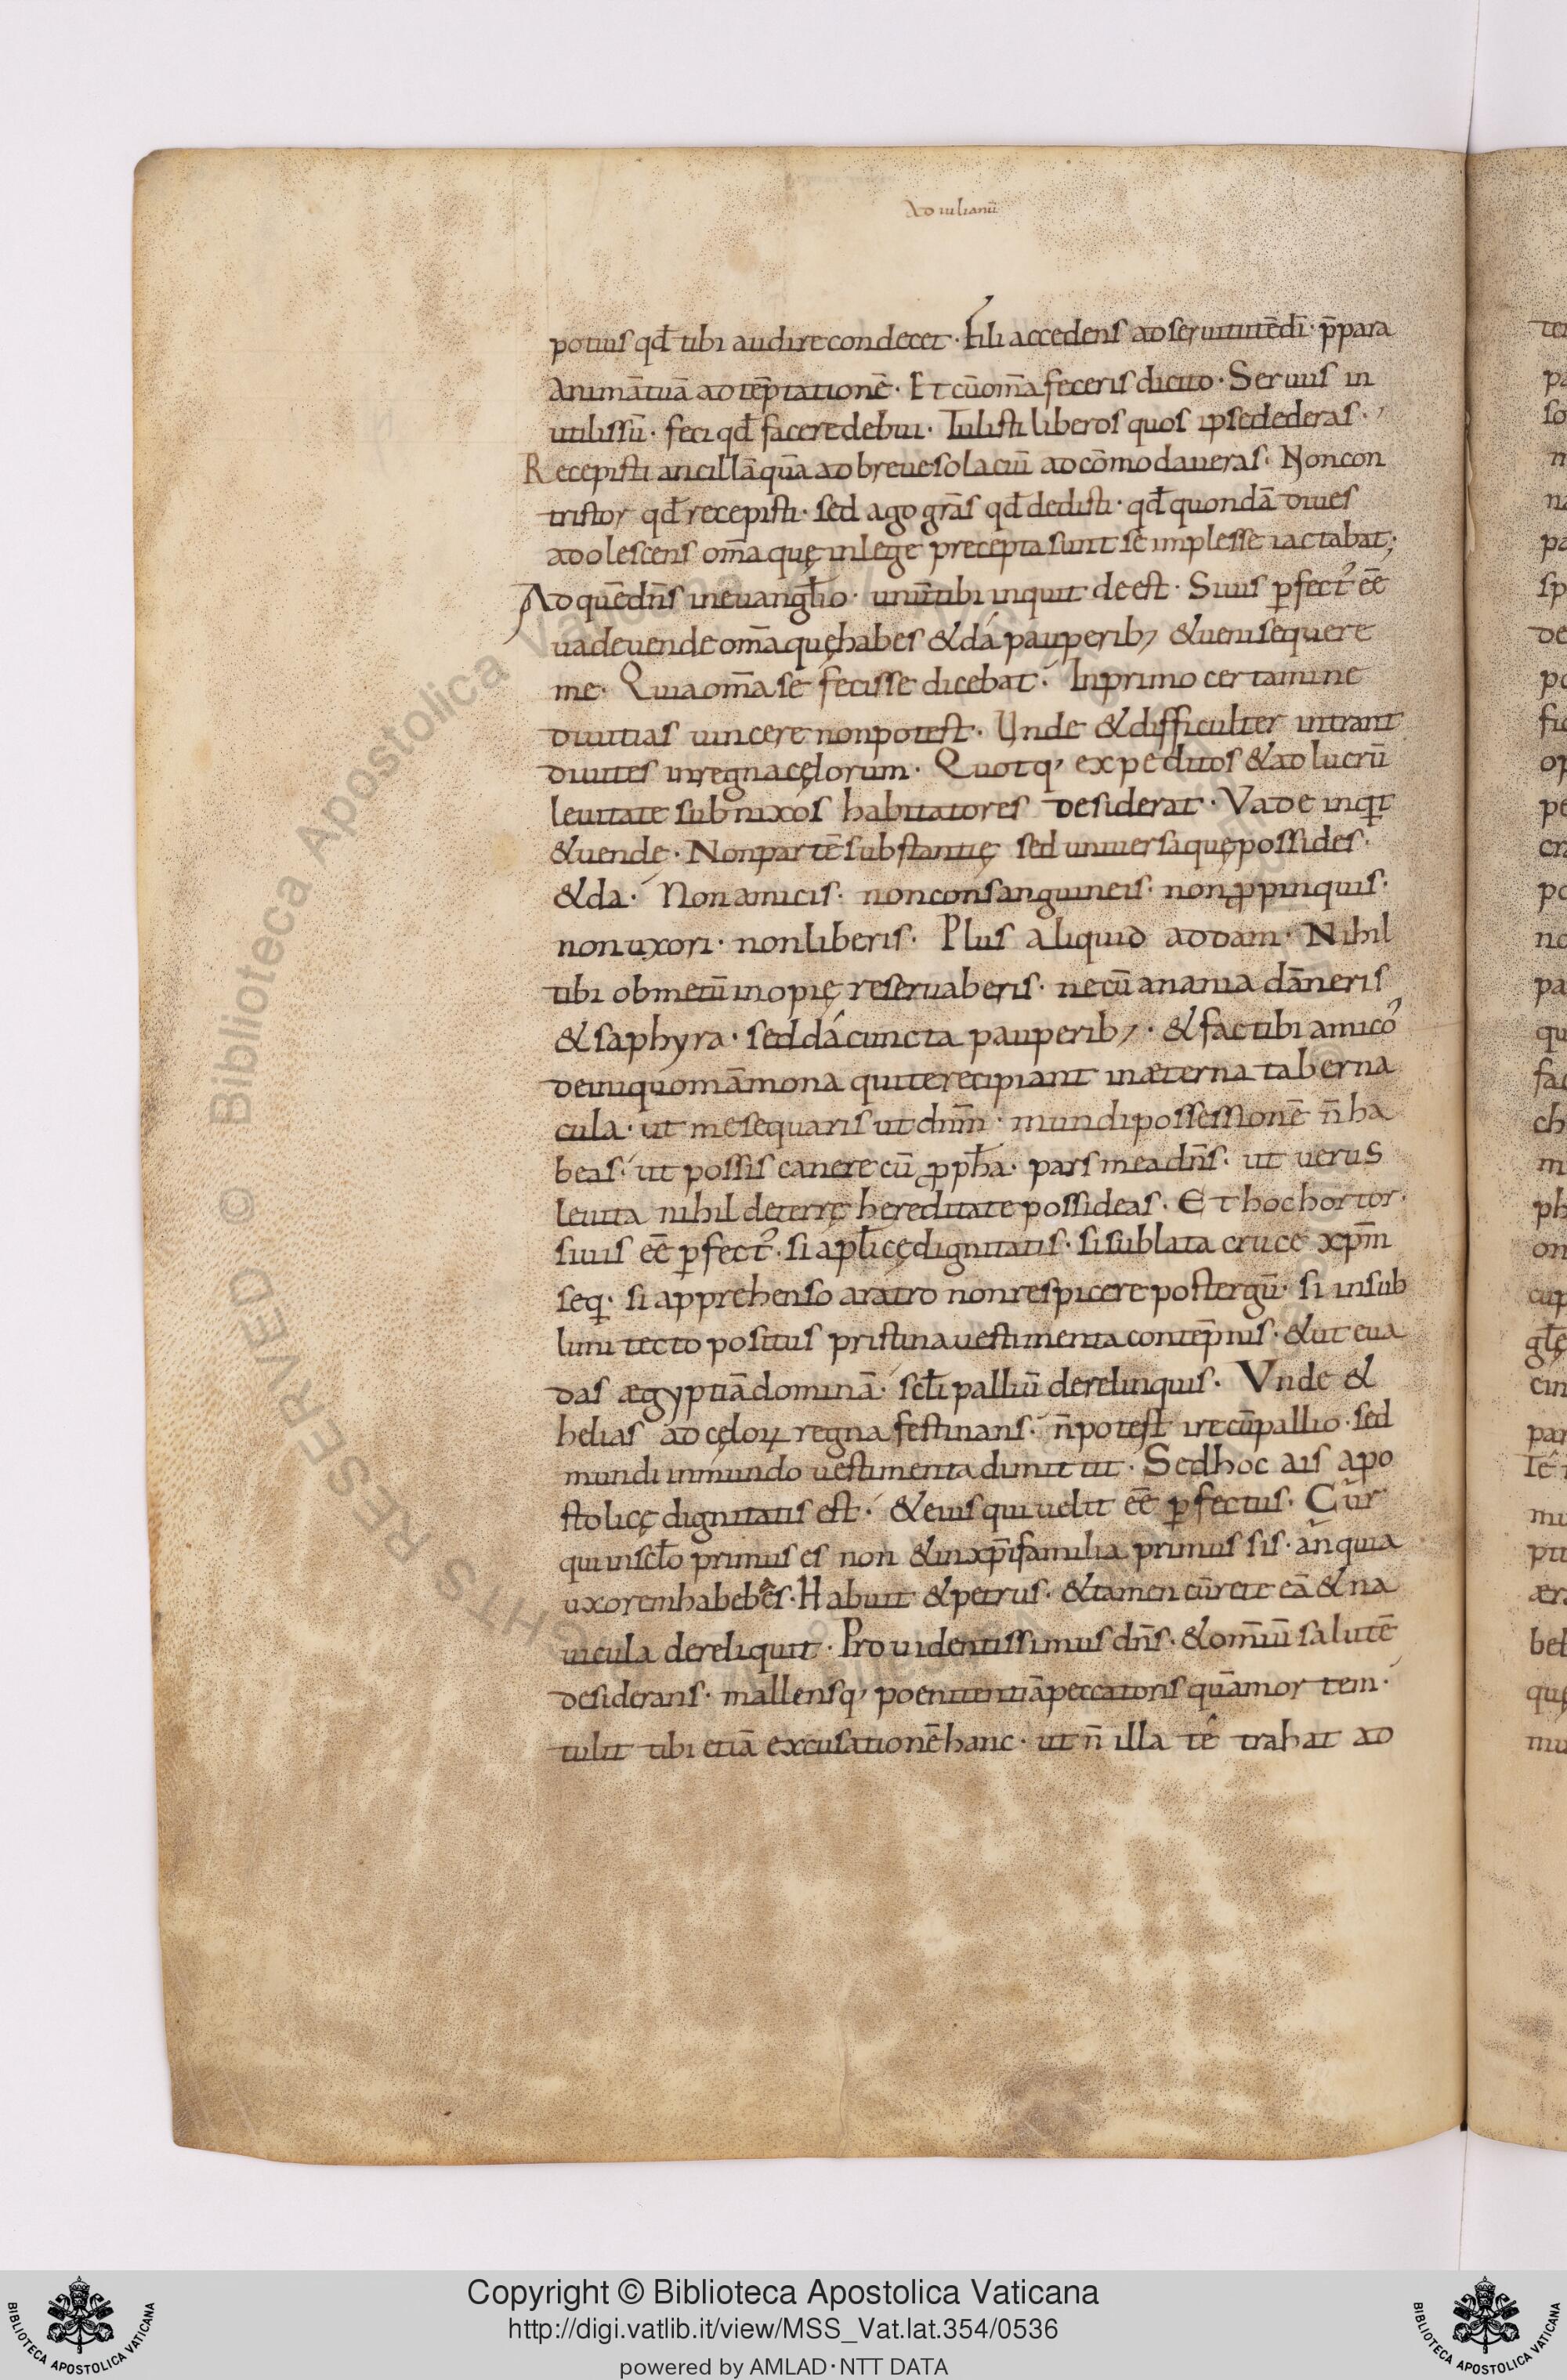 Ad iulianū
potius qđ tibi audire condecet · Fili accedens ad seruitutē dī · p̄para
animā tuā ad tēptationē · Et cū om̄a feceris dicito · Seruus in
utilis sū · feci qđ facere debui · Tulisti liberos quos ipse dederas ·
Recepisti ancillā quā ad breue solaciū adcōmodaueras · Non con
tristor qđ recepisti · sed ago gr̄as qđ dedisti · qđ quondā diues
adolescens om̄a quę in lege precepta sunt se implesse iactabat ;
Ad quē dn̄s in euangł̄io · unū tibi inquit deest · Si uis ꝑfect᾽ ēē
uade uende om̄a quę habes & dá pauperib; & ueni sequere
me · Quia om̄a se fecisse dicebat · In primo certamine
diuitias uincere non potest · Unde & difficulter intrant
diuites in regna cęlorum · Quotq; expeditos & ad lucrū
leuitate subnixos habitatores desiderat · Vade inqt̄
& uende · Non partē substantię sed uniuersa quę possides ·
& da · Non amicis · non consanguineis · non ꝓpinquis ·
non uxori · non liberis · Plus aliquid addam · Nihil
tibi ob metū inopię reseruaberis · ne cū anania dāneris
& saphyra · sed dá cuncta pauperib; · & fac tibi amico᾽
de iniquo māmona qui te recipiant in æterna taberna
cula · ut me sequaris ut dn̄m · mundi possessionē n̄ ha
beas · ut possis canere cū ꝓph̄a · pars mea dn̄s · ut uerus
leuita nihil de terrę hereditate possideas · Et hoc hortor ·
si uis ēē ꝑfect᾽ · si apł̄icę dignitatis · si sublata cruce xp̄m
seq̄ · si apprehenso aratro non respicere post tergū · si in sub
limi tecto positus pristina uestimenta contēpnis · & ut eua
das ægyptiā dominā · scł̄i palliū derelinquis · Vnde &
helias ad cęloꝝ regna festinans · n̄ potest ire cū pallio · sed
mundi in mundo uestimenta dimittit · Sed hoc ais apo
stolicę dignitatis est · & eius qui uelit ēē ꝑfectus · Cur
qui in scł̄o primus es non & in xp̄i familia primus sis · an quia
uxorem habebas · Habuit & petrus · & tamen cū rete eā & na
uicula dereliquit · Prouidentissimus dn̄s · & om̄iū salutē
desiderans · mallensq; poenitentiā peccatoris quā mortem ·
tulit tibi etiā excusationē hanc · ut n̄ illa te trahat ad
Copyright © Biblioteca Apostolica Vaticana
http://digi.vatlib.it/view/MSS_Vat.lat.354/0536
powered by AMLAD·NTT DATA
BIBLIOTECA APOSTOLICA VATICANA
BIBLIOTECA APOSTOLICA VATICANA